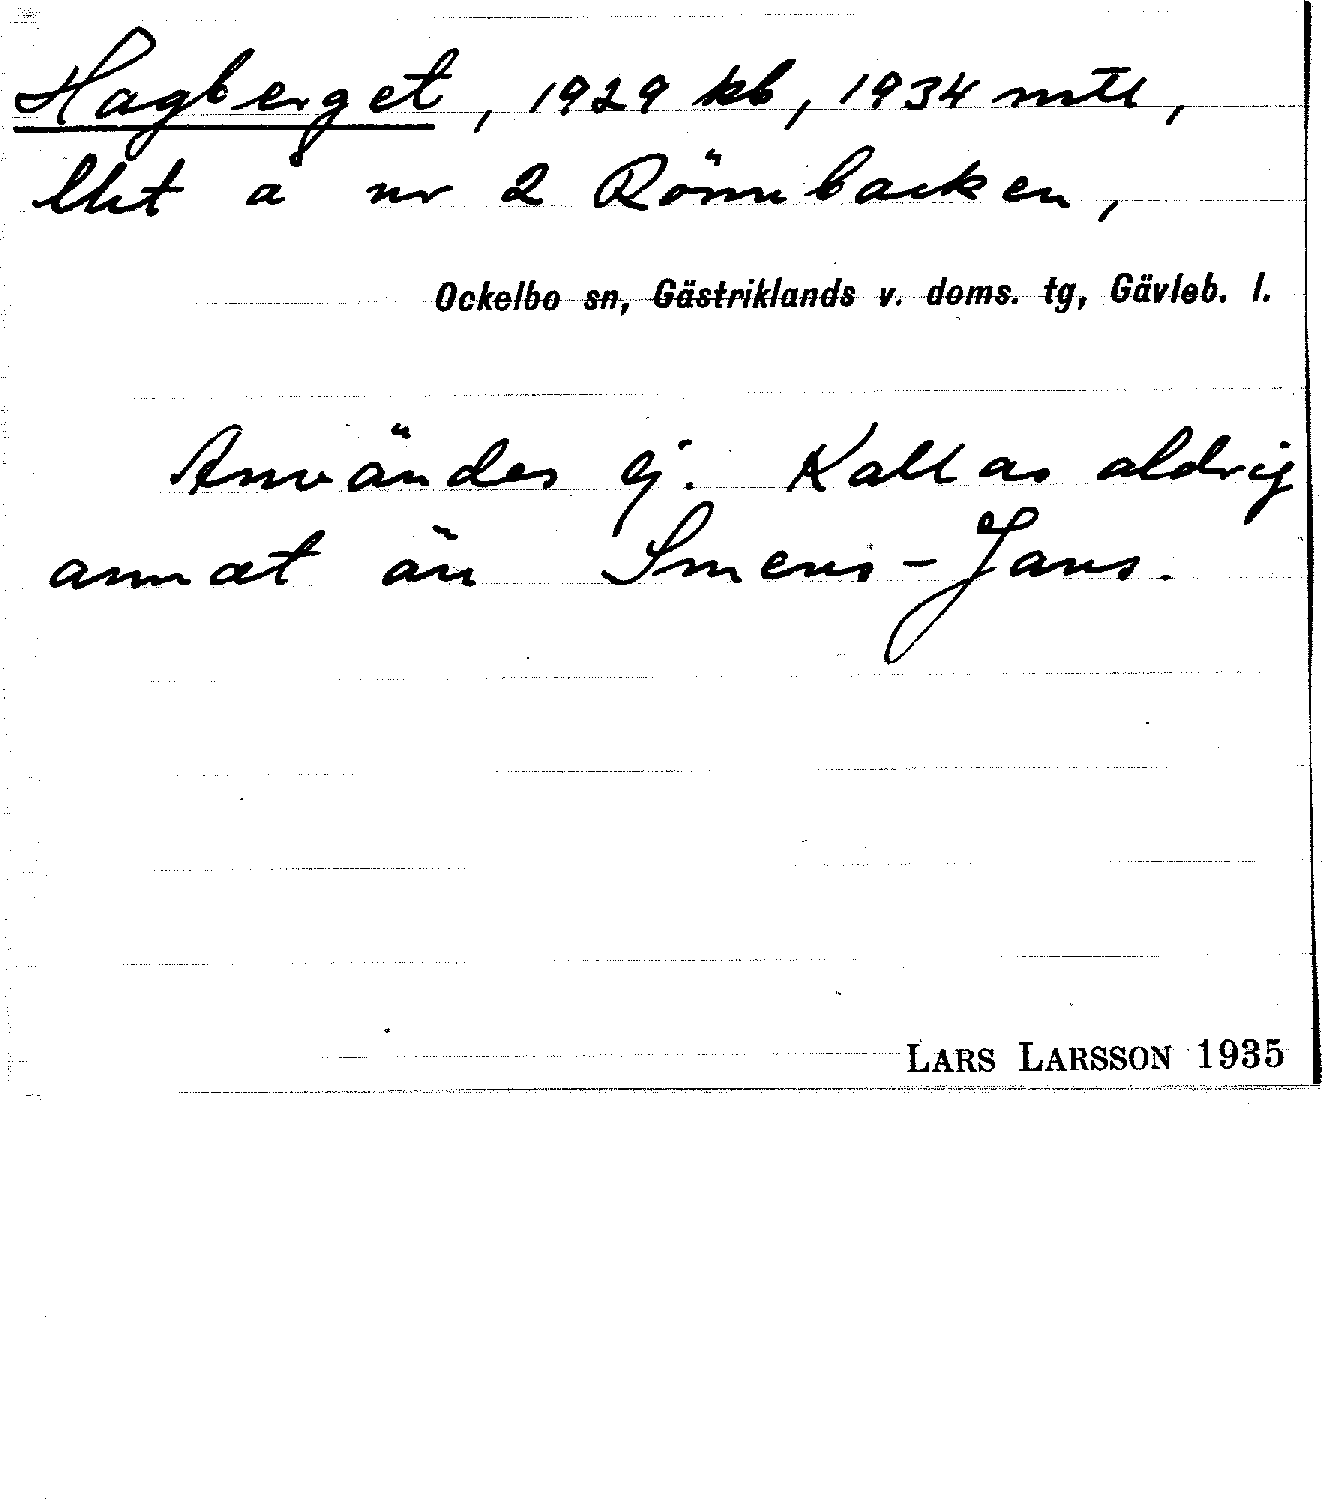 Hagberget, 1929 kb, 1934 mtl,
lht å nr 2 Rönnbacken,
Ockelbo sn, Gästriklands v. doms. tg, Gävleb. l.
Användes ej. Kallas aldrig
annat än Smens-Jans.
LARS LARSSON 1935